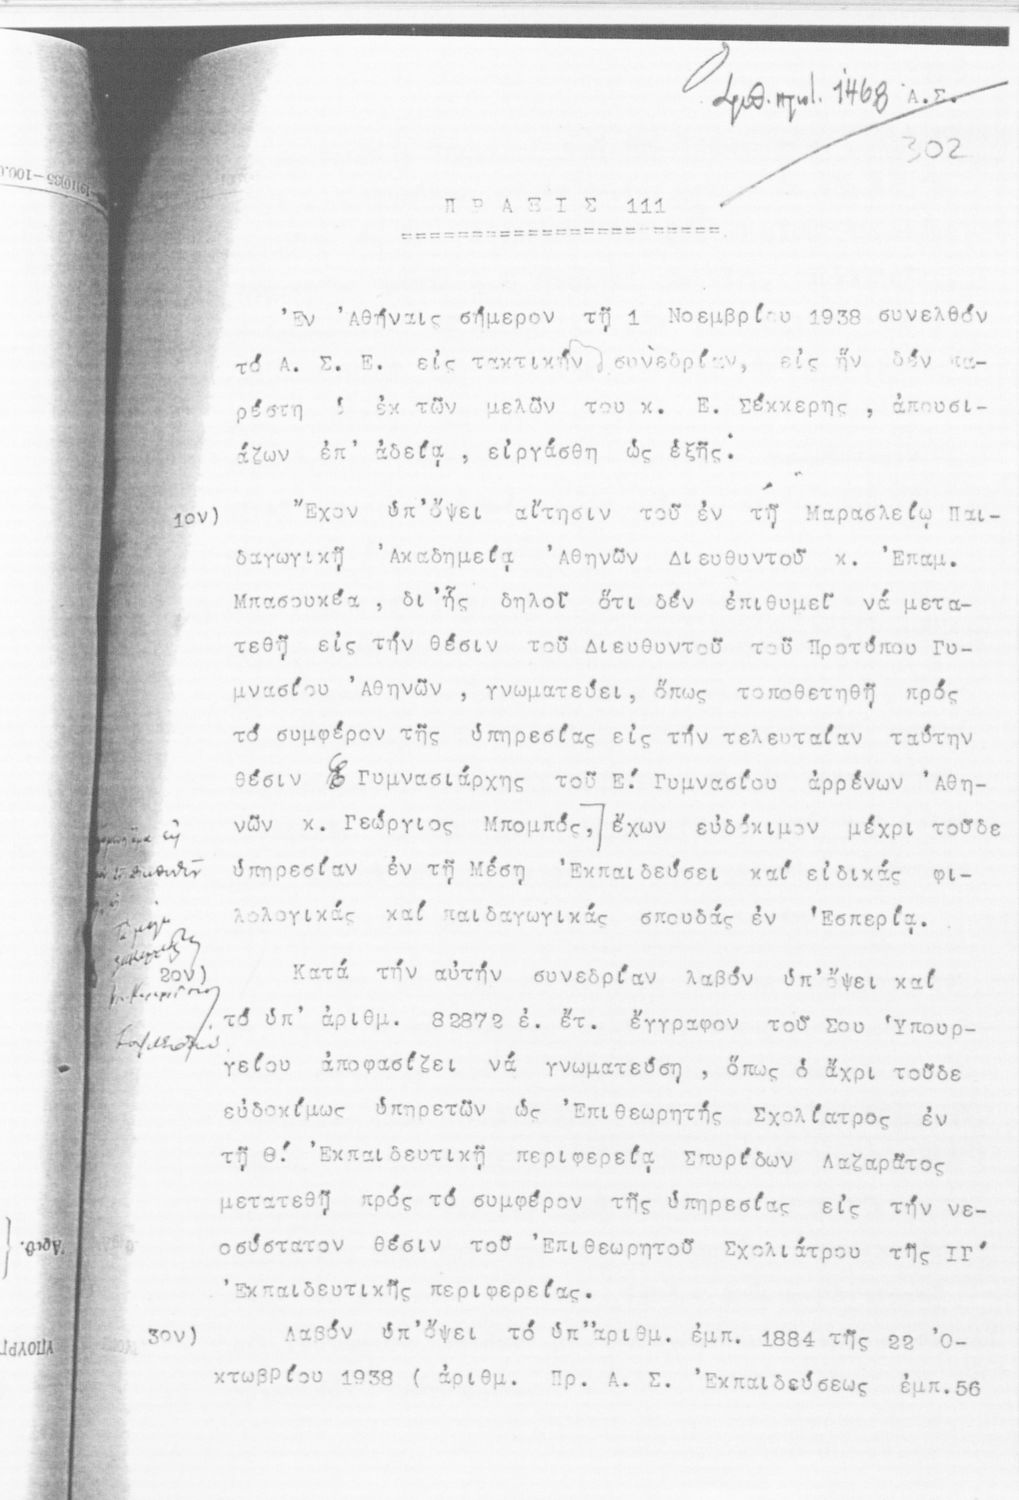 Ἀριθ. πρωτ. 1468 Ἀ.Σ.
302
Π Ρ Α Ξ Ι Σ 111
Ἐν Ἀθήναις σήμερον τῇ 1 Νοεμβρίου 1938 συνελθόν
τό Α. Σ. Ε. εἰς τακτικήν συνεδρίαν, εἰς ἥν δέν πα-
ρέστη ὁ ἐκ τῶν μελῶν του κ. Ε. Σέκκερης, ἀπουσι-
άζων ἐπ' ἀδείᾳ, εἰργάσθη ὡς ἑξῆς:
1ον) Ἔχον ὑπ'ὄψει αἴτησιν τοῦ ἐν τῇ Μαρασλείῳ Παι-
δαγωγικῇ Ἀκαδημείᾳ Ἀθηνῶν Διευθυντοῦ κ. Ἐπαμ.
Μπασουκέα, δι'ἧς δηλοῖ ὅτι δέν ἐπιθυμεῖ νά μετα-
τεθῇ εἰς τήν θέσιν τοῦ Διευθυντοῦ τοῦ Προτύπου Γυ-
μνασίου Ἀθηνῶν, γνωματεύει, ὅπως τοποθετηθῇ πρός
τό συμφέρον τῆς ὑπηρεσίας εἰς τήν τελευταίαν ταύτην
θέσιν ὁ Γυμνασιάρχης τοῦ Ε΄ Γυμνασίου ἀρρένων Ἀθη-
νῶν κ. Γεώργιος Μπομπός, ἔχων εὐδόκιμον μέχρι τοῦδε
ὑπηρεσίαν ἐν τῇ Μέσῃ Ἐκπαιδεύσει καί εἰδικάς φι-
λολογικάς καί παιδαγωγικάς σπουδάς ἐν Ἑσπερίᾳ.
2ον) Κατά τήν αὐτήν συνεδρίαν λαβόν ὑπ'ὄψει καί
τό ὑπ' ἀριθμ. 82872 ἐ. ἔτ. ἔγγραφον τοῦ Σου Ὑπουρ-
γείου ἀποφασίζει νά γνωματεύσῃ, ὅπως ὁ ἄχρι τοῦδε
εὐδοκίμως ὑπηρετῶν ὡς Ἐπιθεωρητής Σχολίατρος ἐν
τῇ Θ΄ Ἐκπαιδευτικῇ περιφερείᾳ Σπυρίδων Λαζαρᾶτος
μετατεθῇ πρός τό συμφέρον τῆς ὑπηρεσίας εἰς τήν νε-
οσύστατον θέσιν τοῦ Ἐπιθεωρητοῦ Σχολιάτρου τῆς ΙΓ΄
Ἐκπαιδευτικῆς περιφερείας.
3ον) Λαβόν ὑπ'ὄψει τό ὑπ'ἀριθμ. ἐμπ. 1884 τῆς 22 Ὀ-
κτωβρίου 1938 ( ἀριθμ. Πρ. Α. Σ. Ἐκπαιδεύσεως ἐμπ.56